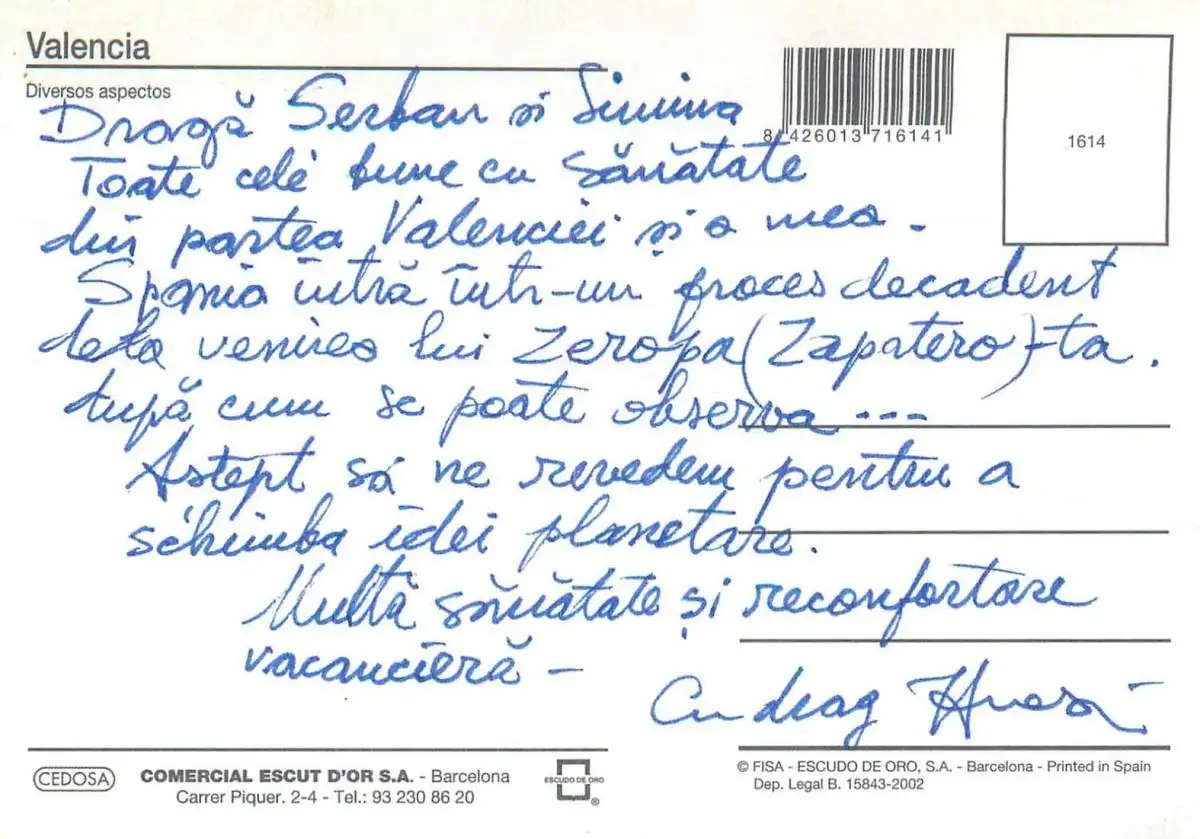 Valencia
Diversos aspectos
8 426013 716141
1614
Dragă Serban si Simina
Toate cele bune cu sănătate
din partea Valenciei și a mea.
Spania intră într-un proces decadent
dela venirea lui Zeropa (Zapatero)-ta.
după cum se poate observa ---
Astept să ne revedem pentru a
schimba idei planetare.
Multă sănătate și reconfortare
vacancieră -
Cu drag
CEDOSA
COMERCIAL ESCUT D'OR S.A. - Barcelona
Carrer Piquer. 2-4 - Tel.: 93 230 86 20
ESCUDO DE ORO
®
© FISA - ESCUDO DE ORO, S.A. - Barcelona - Printed in Spain
Dep. Legal B. 15843-2002